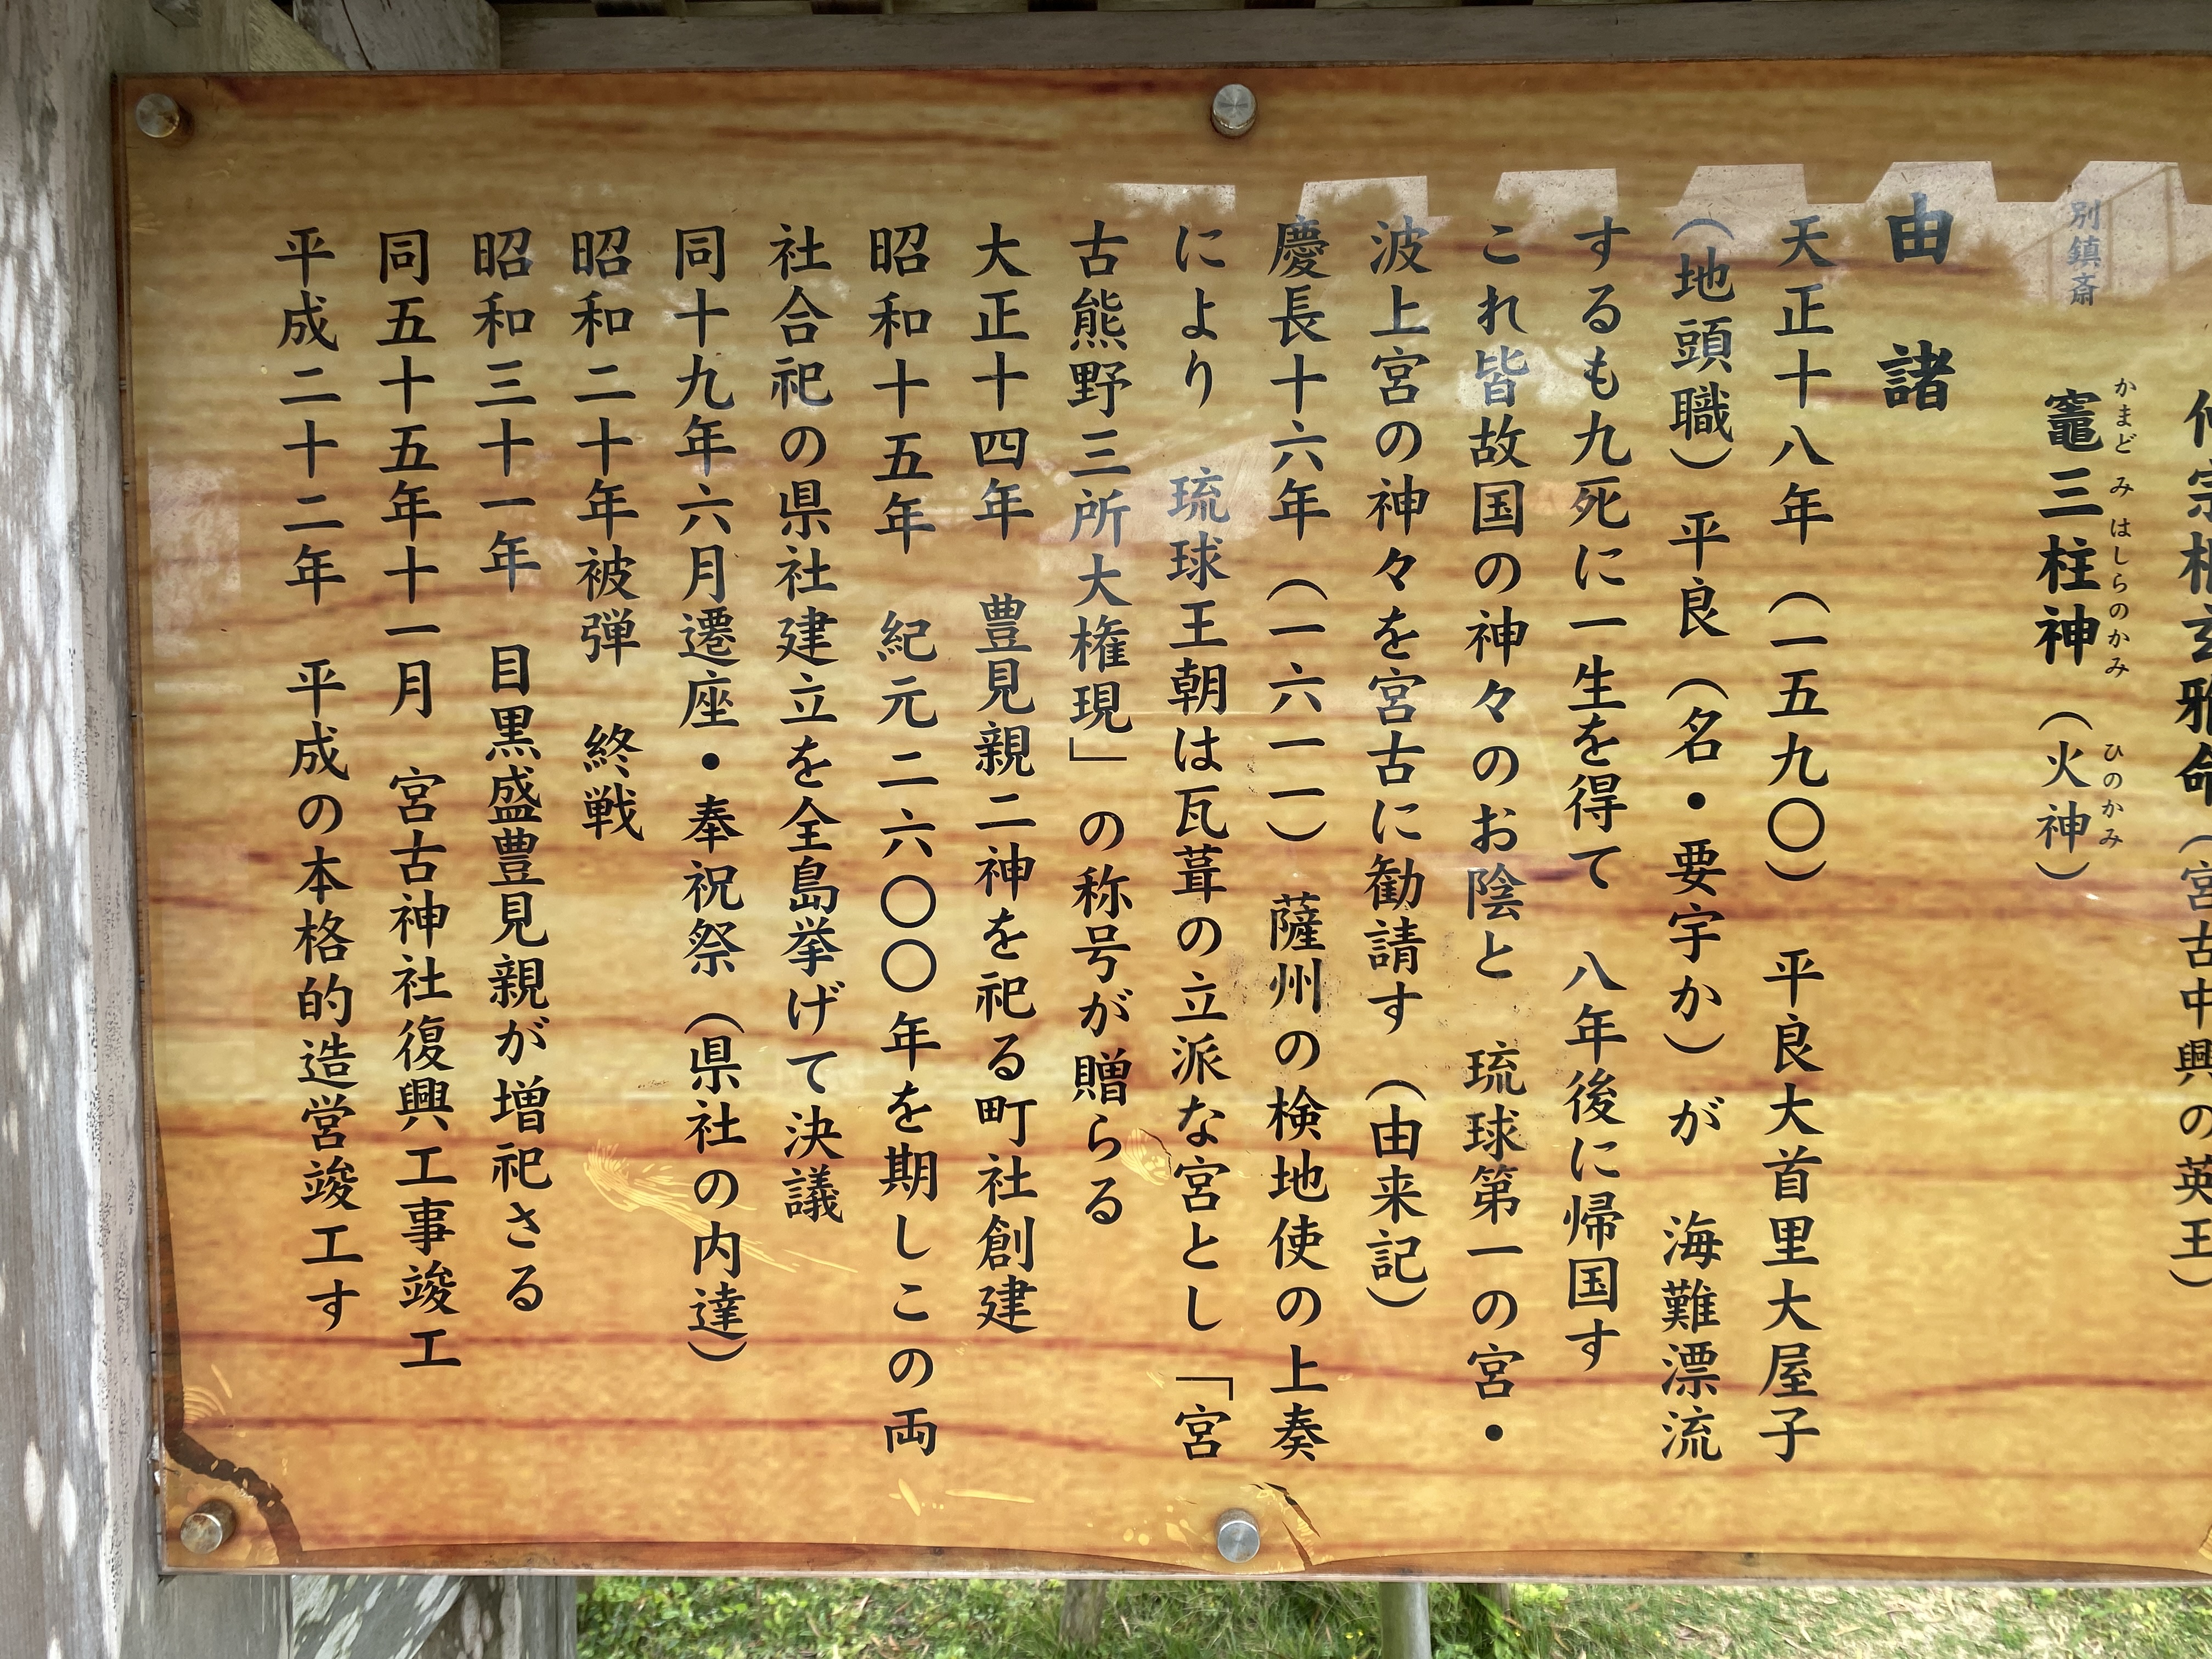 宗根玄雅命（宮古中興の英王）
別鎮斎
竈三柱神（火神）
かまど み はしらのかみ ひのかみ
由諸
天正十八年（一五九〇）　平良大首里大屋子
（地頭職）平良（名・要宇か）が　海難漂流
するも九死に一生を得て　八年後に帰国す
これ皆故国の神々のお陰と　琉球第一の宮・
波上宮の神々を宮古に勧請す（由来記）
慶長十六年（一六一一）　薩州の検地使の上奏
により　琉球王朝は瓦葺の立派な宮とし「宮
古熊野三所大権現」の称号が贈らる
大正十四年　豊見親二神を祀る町社創建
昭和十五年　紀元二六〇〇年を期しこの両
社合祀の県社建立を全島挙げて決議
同十九年六月遷座・奉祝祭（県社の内達）
昭和二十年被弾　終戦
昭和三十一年　目黒盛豊見親が増祀さる
同五十五年十一月　宮古神社復興工事竣工
平成二十二年　平成の本格的造営竣工す